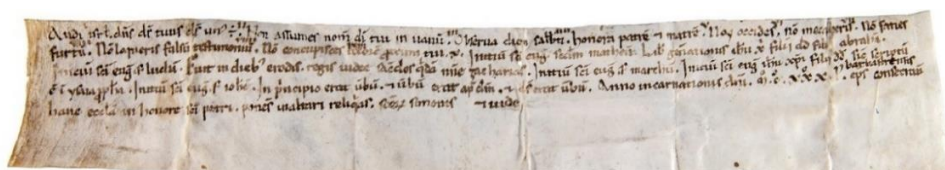 Audi isrl. dñs ds̄ tuus ds̄ un' ē. Nōn assumes nom̄ dī tui in uanū. Obserua diem sabbati. honora patrē & matrē. Nōn occides. nō mecaberis. Nō facies
furtū. Nō loqueris falsū testimoniū. Nō concupisces tui. Iniciū sc̄i euḡ. sc̄dm matheū. Lib generationis ihū x̄pi filii dd̄ filii abrahā.
Iniciū sc̄i euḡ. s. lucā. Fuit in dieb' erodis. regis iudee sac̄dos qdā nn̄e zacharias. Iniciū sc̄i euḡ. s. marchū. Iniciū sc̄i euḡ ihū x̄pi filii dī. sic scriptū
ē ī ysaia ppha. Iniciū sc̄i euḡ. s. iohē. In principio erat ūbū. & ūbū erat ap̄ dm̄. & ds̄ erat ūbū. Anno incarnationis dn̄i. m. c. x. x. x. barbastrensis eps̄ consecrau
hanc eccl̄ā in honore sc̄i petri. ponens in altari reliqas. sc̄ōr simonis & iude